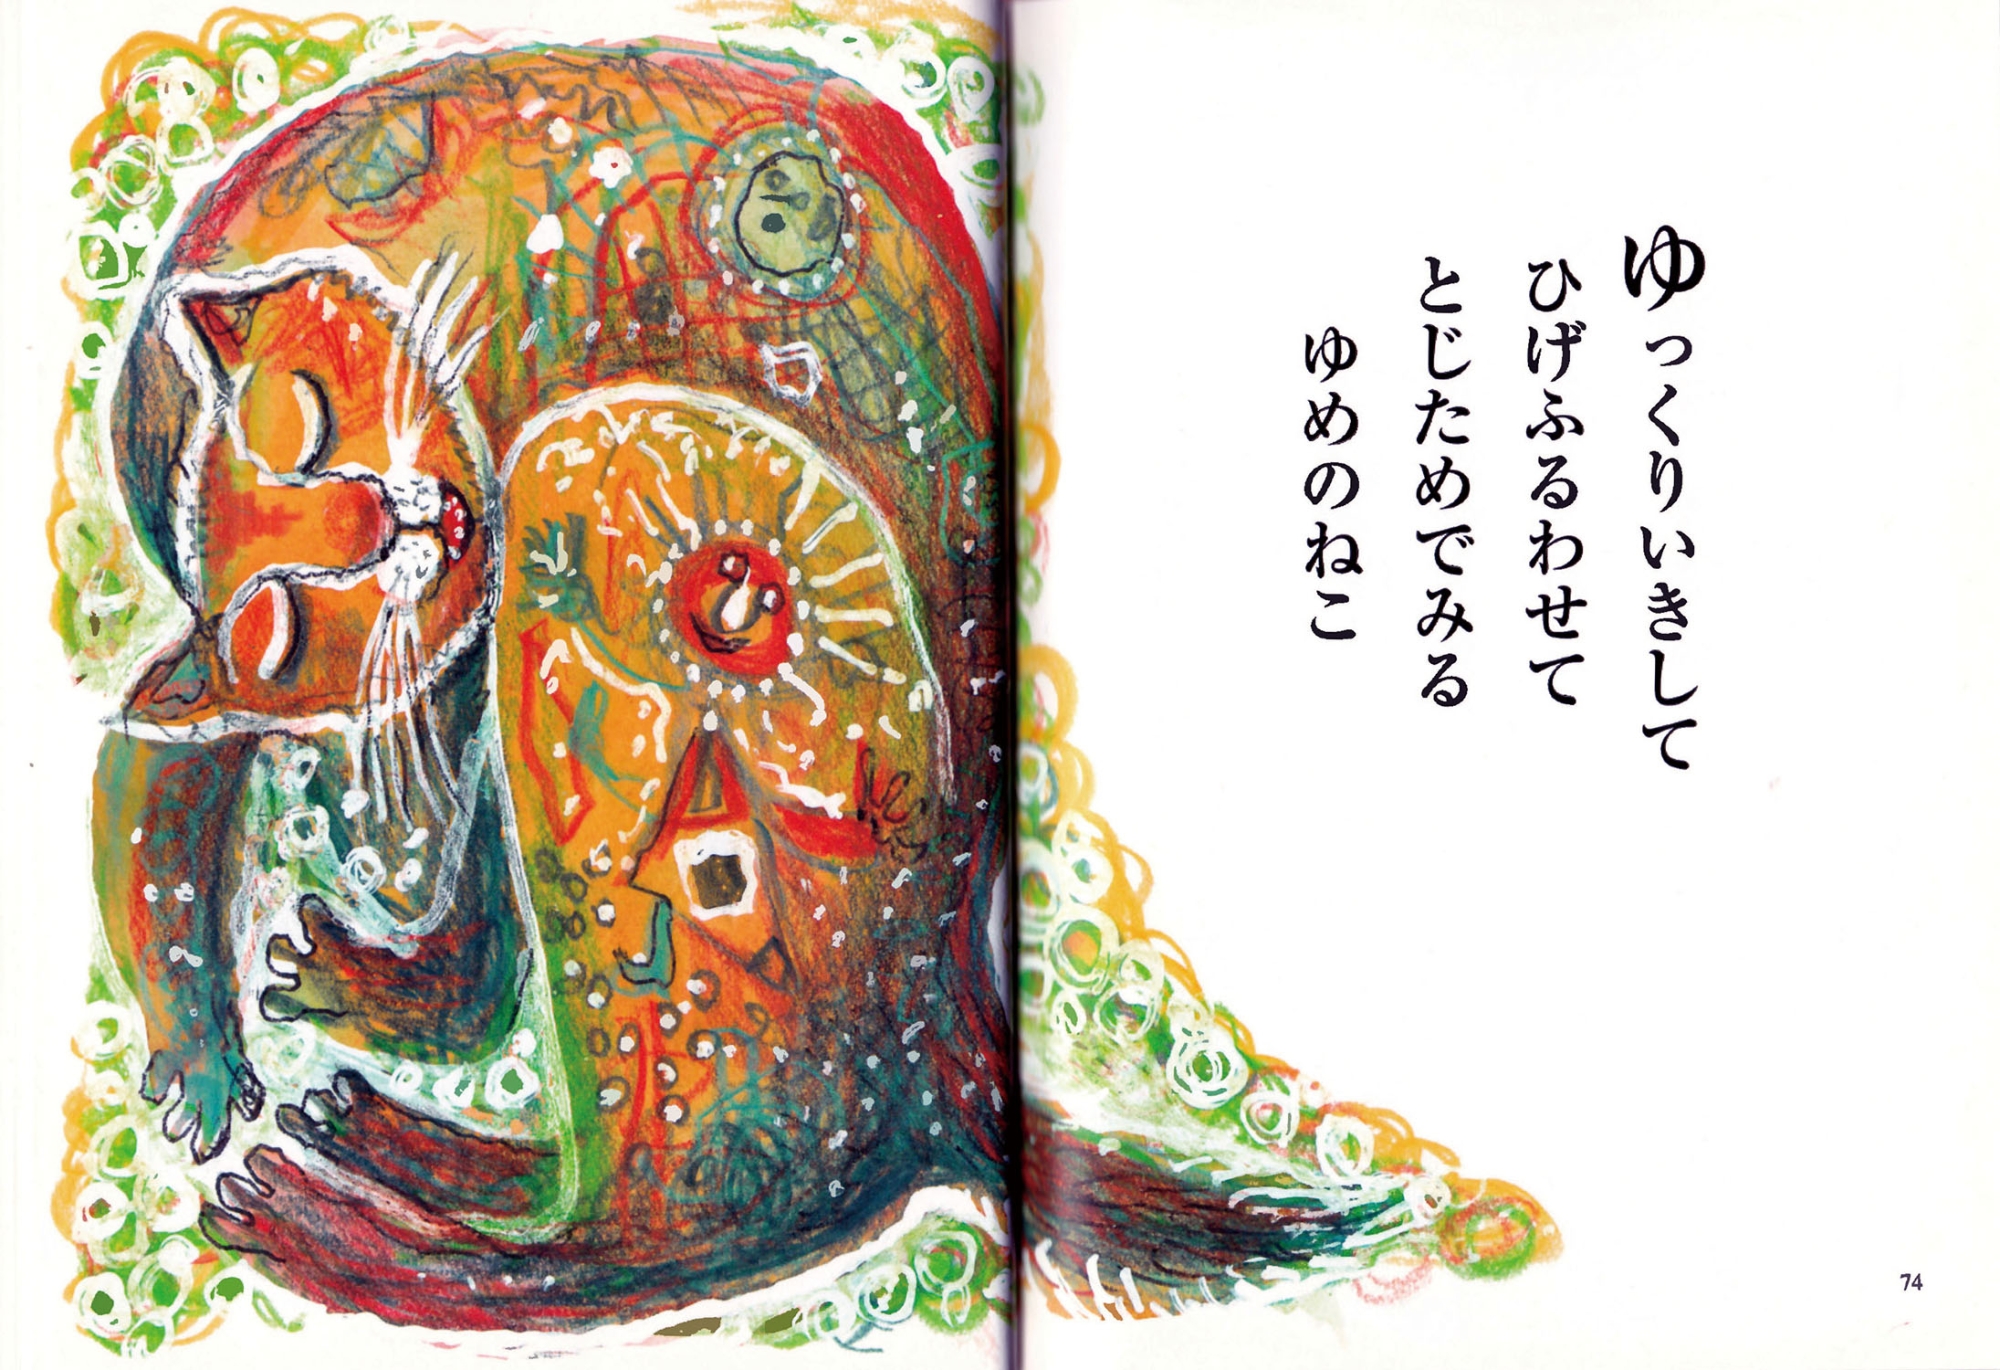 ゆっくりいきして
ひげふるわせて
とじためでみる
ゆめのねこ
74